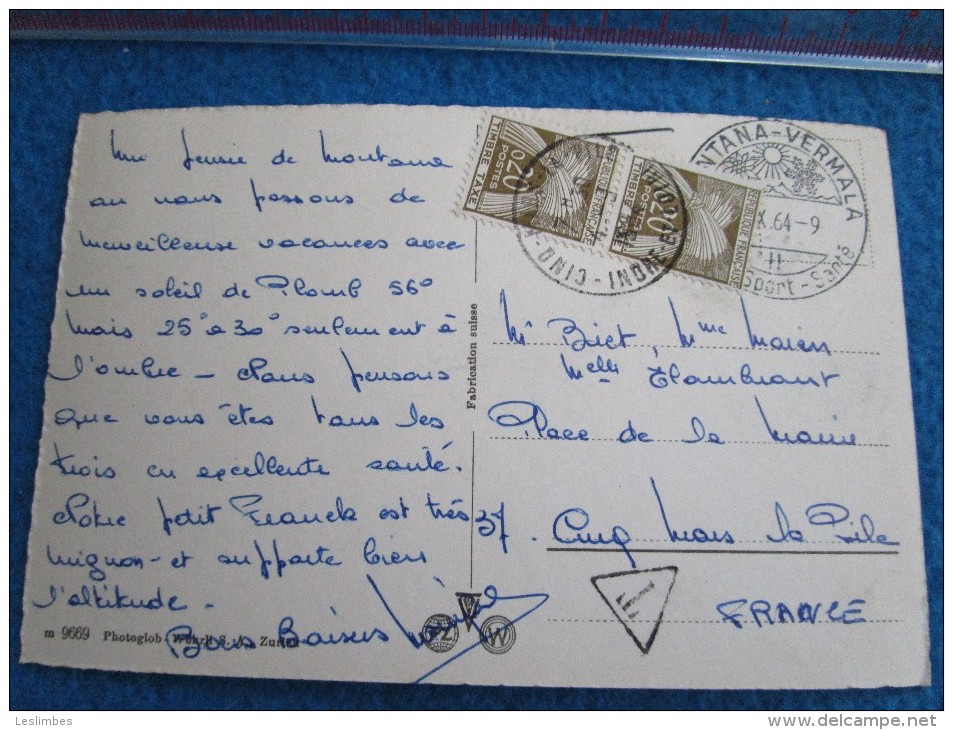 Une pensée de Montana
où nous passons de
merveilleuses vacances avec
un soleil de Plomb 56°
mais 25° à 30° seulement à
l'ombre - Nous pensons
que vous êtes tous les
trois en excellente santé.
Notre petit Franck est très
mignon - et supporte bien
l'altitude -
Bons Baisers
m 9669 Photoglob-Wehrli S. A. Zurich
Fabrication suisse
TIMBRE TAXE
POSTES
0,20
REPUBLIQUE FRANÇAISE
TIMBRE TAXE
POSTES
0,20
REPUBLIQUE FRANÇAISE
NTANA-VERMALA
X.64-9
Sport - Santé
Mr Biet, Mme Marien
Melle Flambeart
Place de la Mairie
37. Cinq Mars la Pile
FRANCE
T
PZ
W
Leslimbes
http://www.delcampe.net